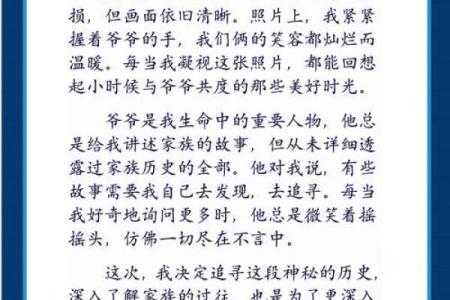 损，但画面依旧清晰。照片上，我紧紧
握着爷爷的手，我们俩的笑容都灿烂而
温暖。每当我凝视这张照片，都能回想
起小时候与爷爷共度的那些美好时光。
爷爷是我生命中的重要人物，他总
是给我讲述家族的故事，但从未详细透
露过家族历史的全部。他对我说，有些
故事需要我自己去发现，去追寻。每当
我好奇地询问更多时，他总是微笑着摇
摇头，仿佛一切尽在不言中。
这次，我决定追寻这段神秘的历史，
深入了解家族的过往，也是为了更深入